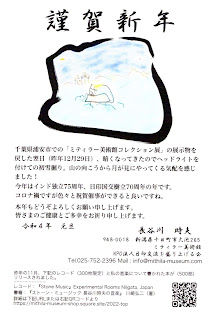 謹賀新年
千葉県浦安市での「ミティラー美術館コレクション展」の展示物を
戻した翌日（昨年12月29日）、暗くなってきたのでヘッドライトを
付けての初雪掘り、山の向こうから月が見にやってくる気配を感じ
ました！
今年はインド独立75周年、日印国交樹立70周年の年です。
コロナ禍ですが色々と祝賀催事ができると良いですね。
本年もどうぞよろしくお願い申し上げます。
皆さまのご健康とご多幸をお祈り申し上げます。
令和4年 元旦
長谷川 時夫
948-0018 新潟県十日町市大池265
ミティラー美術館
NPO法人日印交流を盛り上げる会
Tel:025-752-2396 Mail : info@mithila-museum.com
昨年の11月、下記のレコード（300枚限定）と私の音楽について書かれた本が（500部）
リリースされました。
レコード：『Stone Music』 Experimental Rooms Niigata, Japan
書籍：『ストーン・ミュージック 長谷川時夫の音楽』
詳細は下記URLまたは右記QRコードより
https://mithila-museum-shop.square.site/2022-top